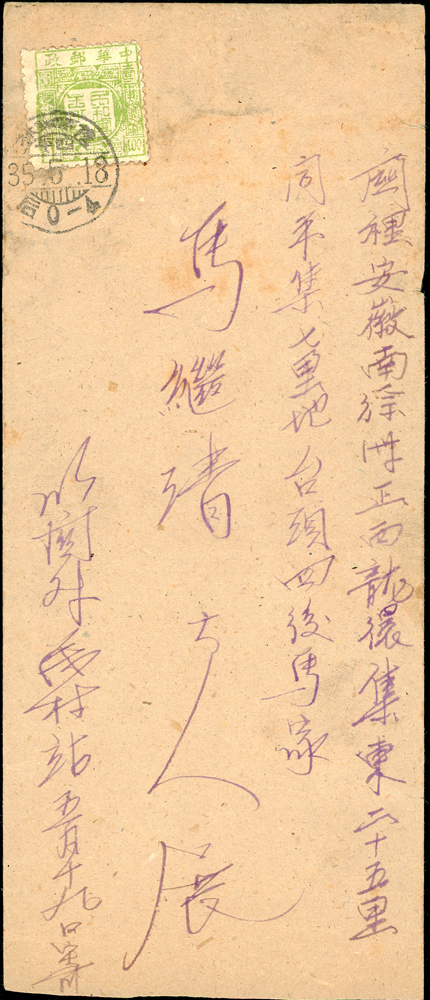 中華郵政
35.6.18
0-4
安徽南徐州正西龍擐集東二十五里
高平集七里地台頭四後馬家
馬繼清大人展
站五月十九日寄